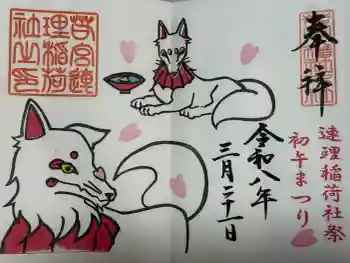 奉拝
連理稲荷社祭
初午まつり
令和八年
三月二十一日
若宮連
理稲荷
社之印